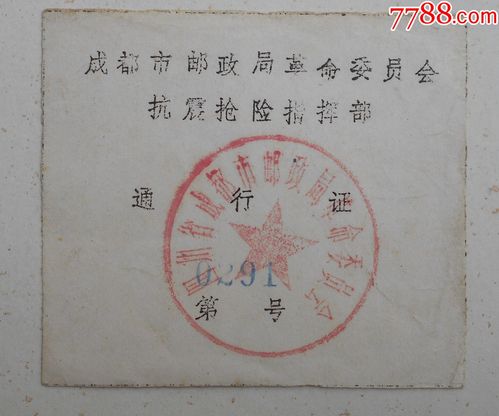 7788.com
成都市邮政局革命委员会
抗震抢险指挥部
四川省成都市邮政局革命委员会
通行证
0291
第 号